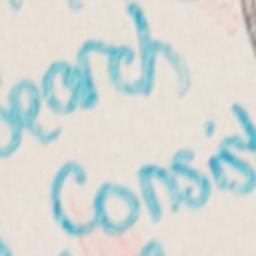 search
Consist